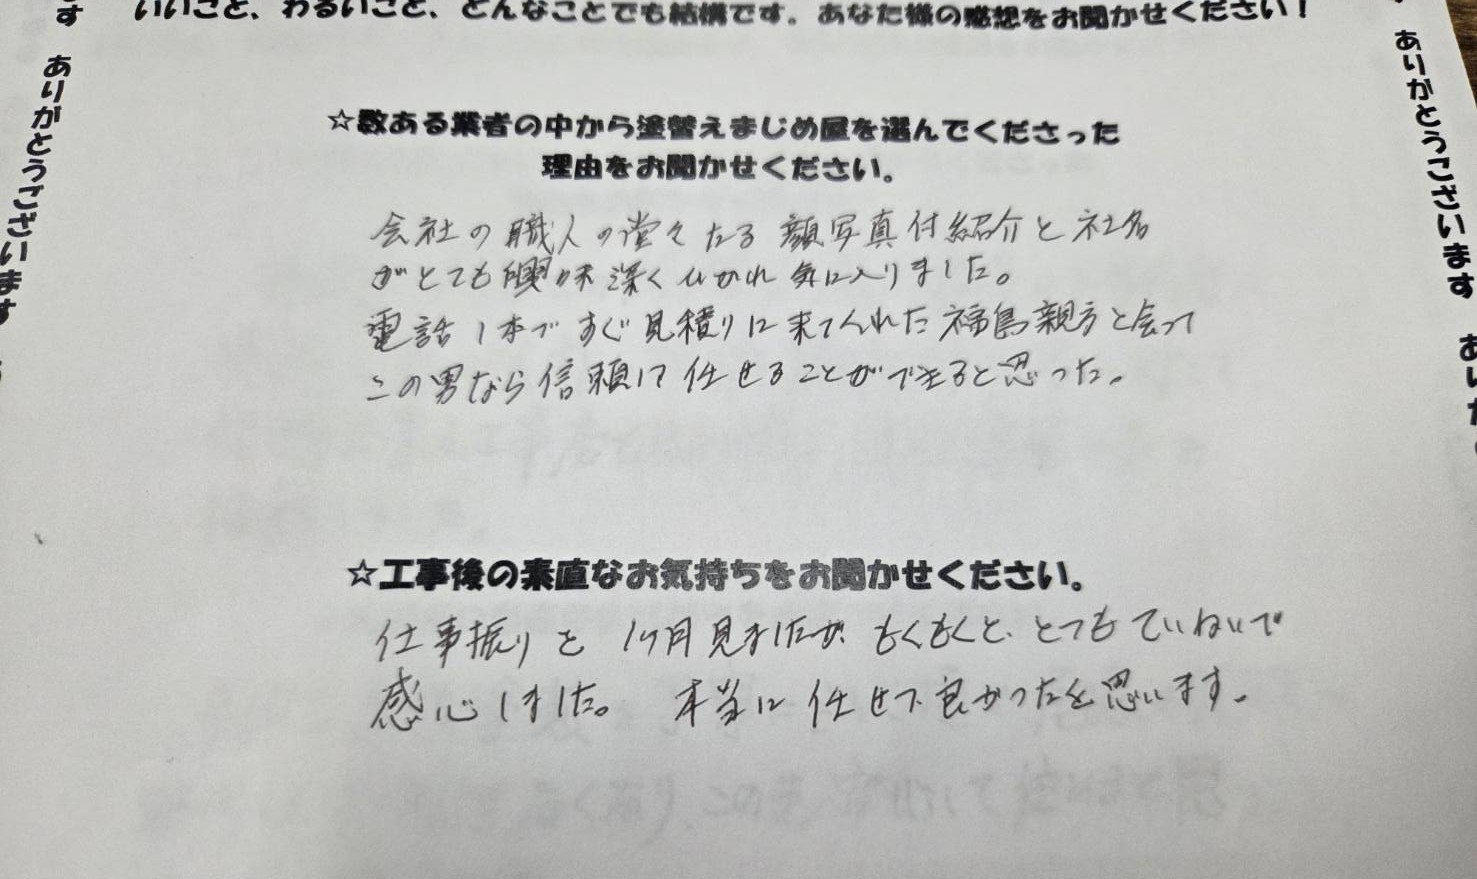 いいこと、わるいこと、どんなことでも結構です。あなた様の感想をお聞かせください！
☆数ある業者の中から塗替えまじめ屋を選んでくださった
理由をお聞かせください。
会社の職人の堂々たる顔写真付紹介と社名
がとても興味深くひかれ気に入りました。
電話1本ですぐ見積りに来てくれた福島親方と会って
この男なら信頼して任せることができると思った。
☆工事後の素直なお気持ちをお聞かせください。
仕事振りを1ヶ月見ましたが、もくもくと、とてもていねいで
感心しました。 本当に任せて良かったと思います。
す ありがとうございます
ありがとうございます